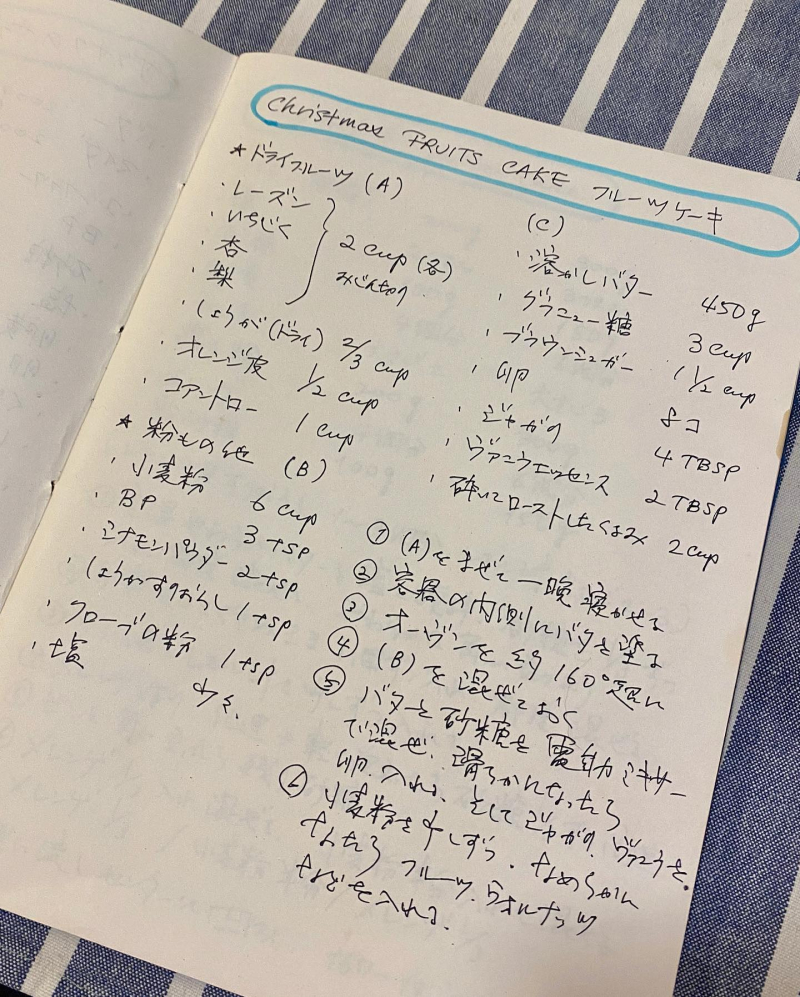 Christmas FRUITS CAKE フルーツケーキ
★ドライフルーツ (A)
・レーズン
・いちじく
・杏
・梨
2 cup (各)
みじん切り
・しょうが(ドライ) 2/3 cup
・オレンジ皮 1/2 cup
・コアントロー 1 cup
★粉もの他 (B)
・小麦粉 6 cup
・BP 3 tsp
・シナモンパウダー 2 tsp
・しょうがすりおろし 1 tsp
・クローブの粉 1 tsp
・塩 少々
(C)
・溶かしバター 450g
・グラニュー糖 3 cup
・ブラウンシュガー 1 1/2 cup
・卵 8コ
・ジャガの 4 TBSP
・ヴァニラエッセンス 2 TBSP
・砕いてローストしたくるみ 2 cup
① (A)をまぜて一晩寝かせる
② 容器の内側にバタを塗る
③ オーヴンを約160°超に
④ (B)を混ぜておく
⑤ バタと砂糖を電動ミキサー
で混ぜ、滑らかになったら
卵入れる、そしてジャガの、ヴァニラを。
⑥ 小麦粉を少しずつ、なめらかに
なったらフルーツ、ウォルナッツ
などを入れる。